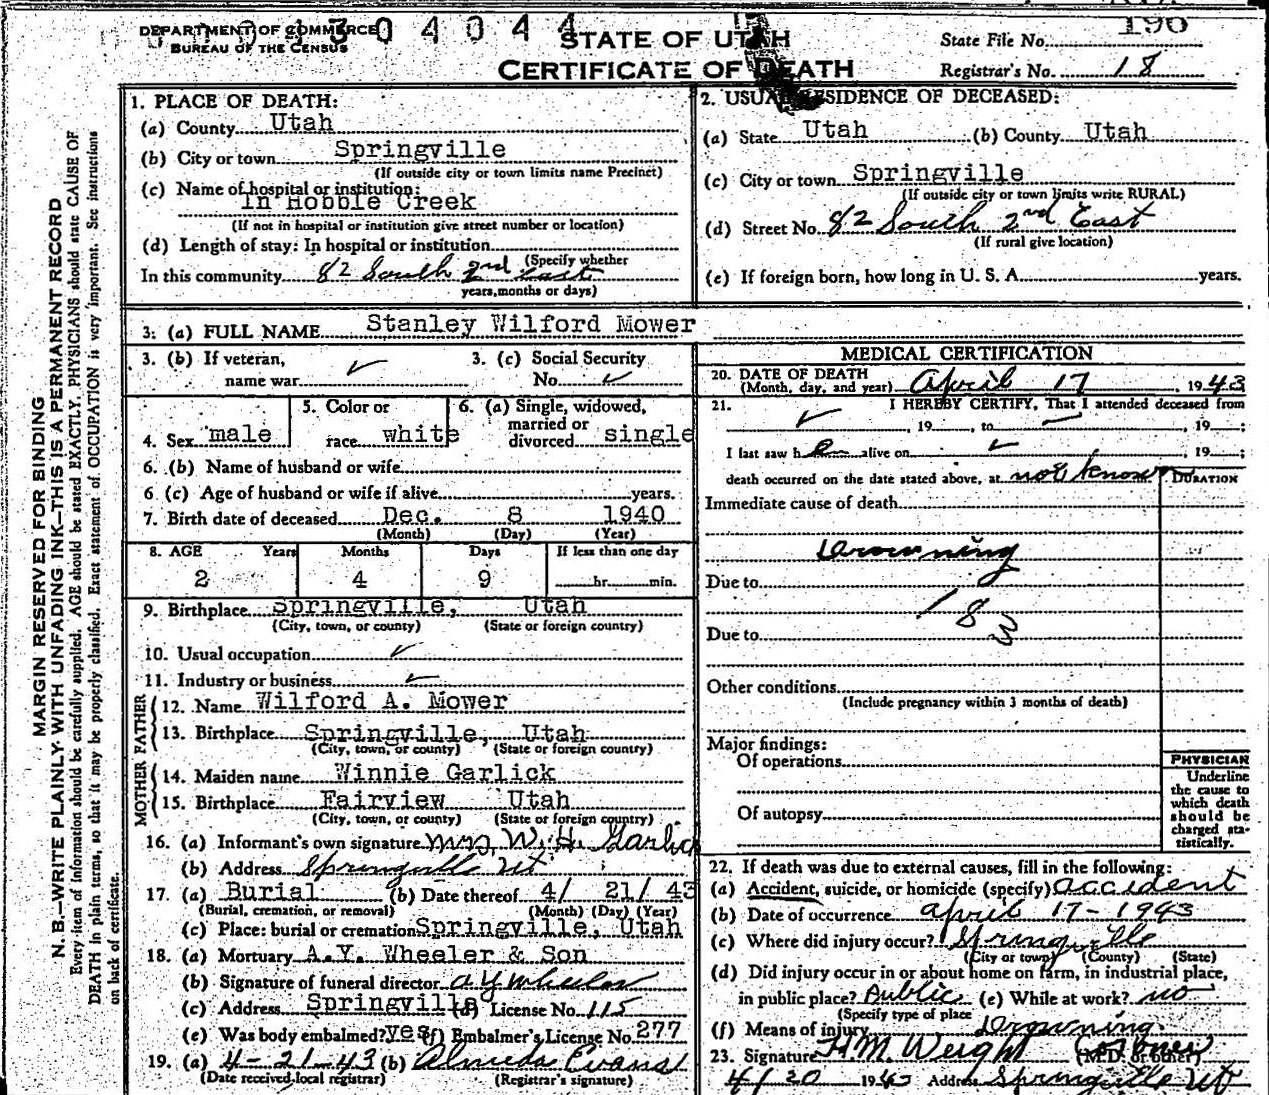 DEPARTMENT OF COMMERCE
BUREAU OF THE CENSUS
304044
STATE OF UTAH
CERTIFICATE OF DEATH
State File No. 196
Registrar's No. 18
MARGIN RESERVED FOR BINDING
N. B.—WRITE PLAINLY WITH UNFADING INK—THIS IS A PERMANENT RECORD
Every item of information should be carefully supplied. AGE should be stated EXACTLY. PHYSICIANS should state CAUSE OF
DEATH in plain terms, so that it may be properly classified. Exact statement of OCCUPATION is very important. See instructions
on back of certificate.
1. PLACE OF DEATH:
(a) County Utah
(b) City or town Springville
(If outside city or town limits name Precinct)
(c) Name of hospital or institution:
In Hobble Creek
(If not in hospital or institution give street number or location)
(d) Length of stay: In hospital or institution
(Specify whether
In this community 82 South 2nd East
years, months or days)
2. USUAL RESIDENCE OF DECEASED:
(a) State Utah (b) County Utah
(c) City or town Springville
(If outside city or town limits write RURAL)
(d) Street No. 82 South 2nd East
(If rural give location)
(e) If foreign born, how long in U. S. A. years.
3. (a) FULL NAME Stanley Wilford Mower
3. (b) If veteran, name war ✓
3. (c) Social Security No. ✓
4. Sex male
5. Color or race white
6. (a) Single, widowed, married or divorced single
6. (b) Name of husband or wife
6 (c) Age of husband or wife if alive years.
7. Birth date of deceased Dec. 8 1940
(Month) (Day) (Year)
8. AGE Years Months Days If less than one day
2 4 9 hr. min.
9. Birthplace Springville, Utah
(City, town, or county) (State or foreign country)
10. Usual occupation ✓
11. Industry or business ✓
FATHER
12. Name Wilford A. Mower
13. Birthplace Springville, Utah
(City, town, or county) (State or foreign country)
MOTHER
14. Maiden name Winnie Garlick
15. Birthplace Fairview Utah
(City, town, or county) (State or foreign country)
16. (a) Informant's own signature Mrs W. H. Garlick
(b) Address Springville Ut
17. (a) Burial (b) Date thereof 4/ 21/ 43
(Burial, cremation, or removal) (Month) (Day) (Year)
(c) Place: burial or cremation Springville, Utah
18. (a) Mortuary A.Y. Wheeler & Son
(b) Signature of funeral director A Y Wheeler
(c) Address Springville (d) License No. 115
(e) Was body embalmed? yes (f) Embalmer's License No. 277
19. (a) 4-21-43 (b) Almeda Evans
(Date received local registrar) (Registrar's signature)
MEDICAL CERTIFICATION
20. DATE OF DEATH
(Month, day, and year) April 17, 1943
21. I HEREBY CERTIFY, That I attended deceased from
✓, 19, to —, 19;
I last saw h alive on ✓, 19;
death occurred on the date stated above, at not known
DURATION
Immediate cause of death
Drowning
Due to
183
Due to
Other conditions
(Include pregnancy within 3 months of death)
Major findings:
Of operations
Of autopsy
PHYSICIAN
Underline
the cause to
which death
should be
charged sta-
tistically.
22. If death was due to external causes, fill in the following:
(a) Accident, suicide, or homicide (specify) accident
(b) Date of occurrence April 17-1943
(c) Where did injury occur? Springville
(City or town) (County) (State)
(d) Did injury occur in or about home on farm, in industrial place,
in public place? Public (e) While at work? no
(Specify type of place
(f) Means of injury Drowning
23. Signature H M Weight (M.D. or other)
4/20 1943 Address Springville Ut